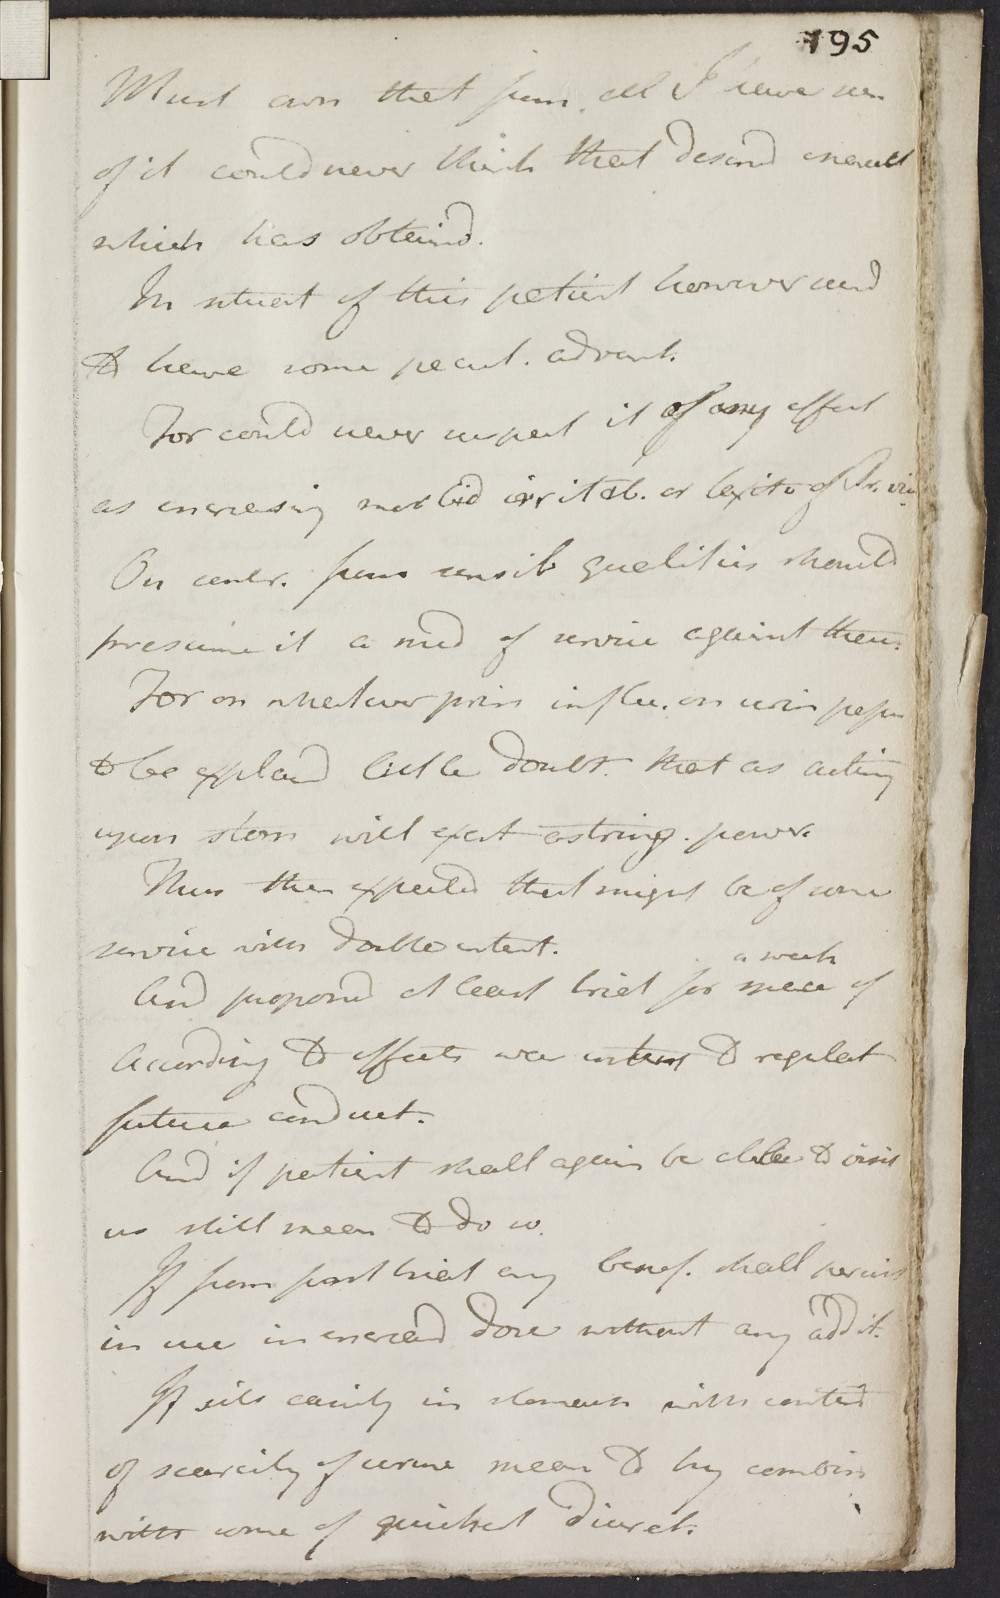 195
Must own that from all I have seen
of it could never think that deservd encoml
which has obtaind.
In situat of this patient however seemd
to have some pecul. advant.
For could never suspect it of any effect
as increasing morbid irritab. or laxity of
On contr. from sensib qualities should
presume it a med of service against these.
For on whatever prin influ. on urin passa
to be explaind little doubt that as acting
upon stom will exert astring. power.
Thus then expected that might be of some
service with double intent.
a week
And proposed at least trial for space of
According to effects were intent to regulat
future conduct.
And if patient shall again be able to visit
us still mean to do so.
If from past trial any benef. shall persist
in use in increasd dose without any addit.
If sits easily in stomach with contind
of scarcity of urine mean to try combin
with some of quickest diuret.